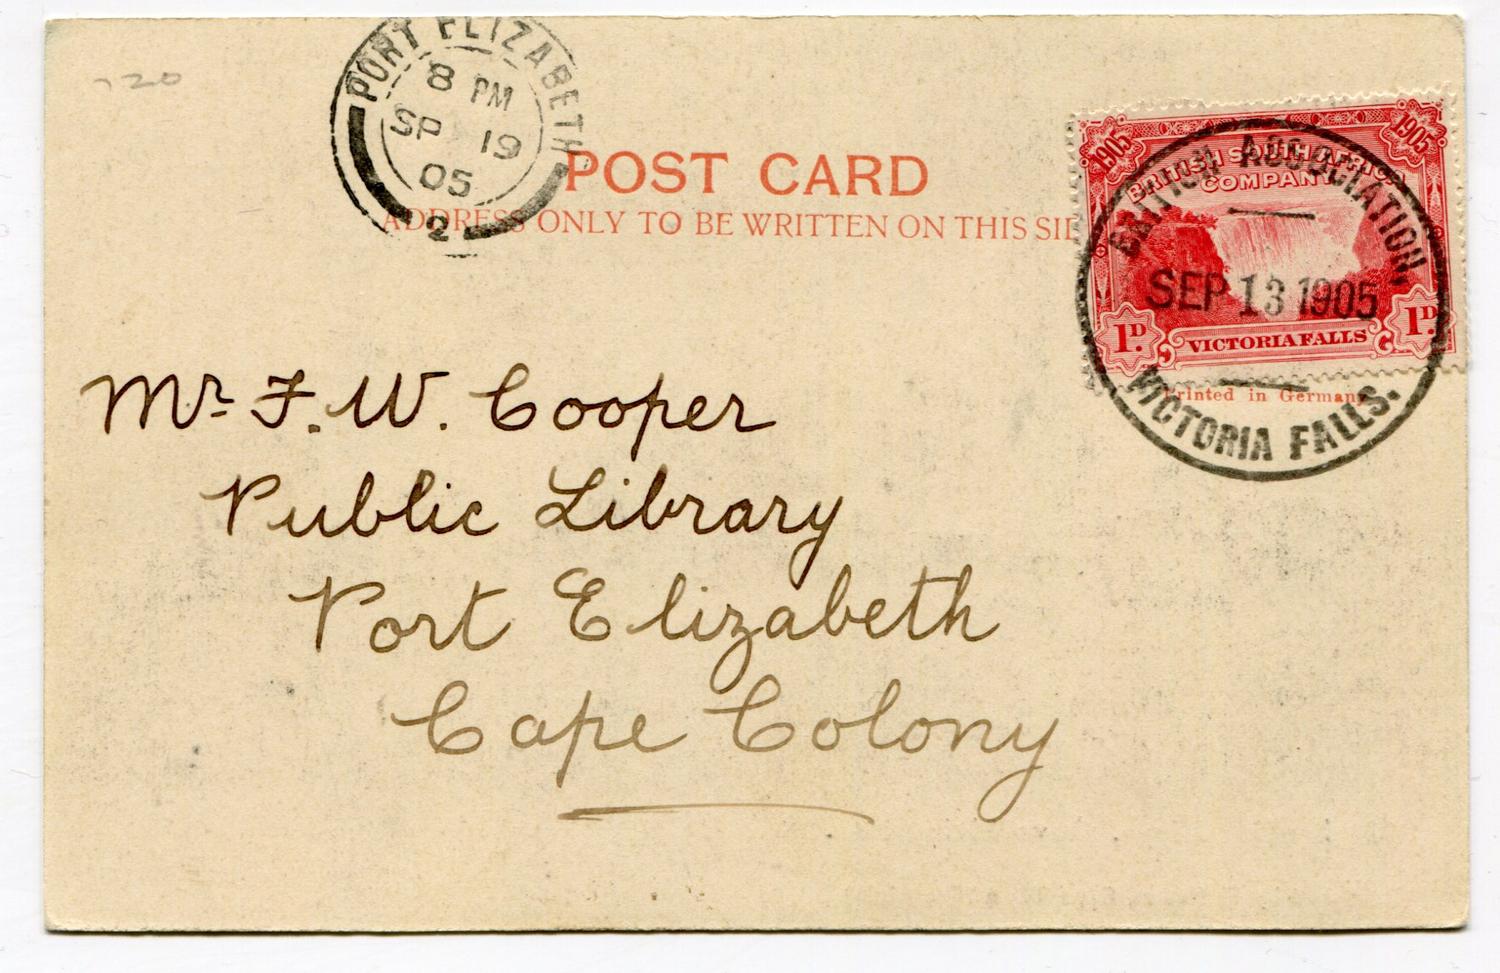 720
PORT ELIZABETH
8 PM
SP 19
05
2
POST CARD
ADDRESS ONLY TO BE WRITTEN ON THIS SID
1905 1905
BRITISH SOUTH AFRICA
COMPANY
1D. 1D.
VICTORIA FALLS
BRITISH ASSOCIATION,
SEP 13 1905
VICTORIA FALLS.
Printed in Germany
Mr. F. W. Cooper
Public Library
Port Elizabeth
Cape Colony